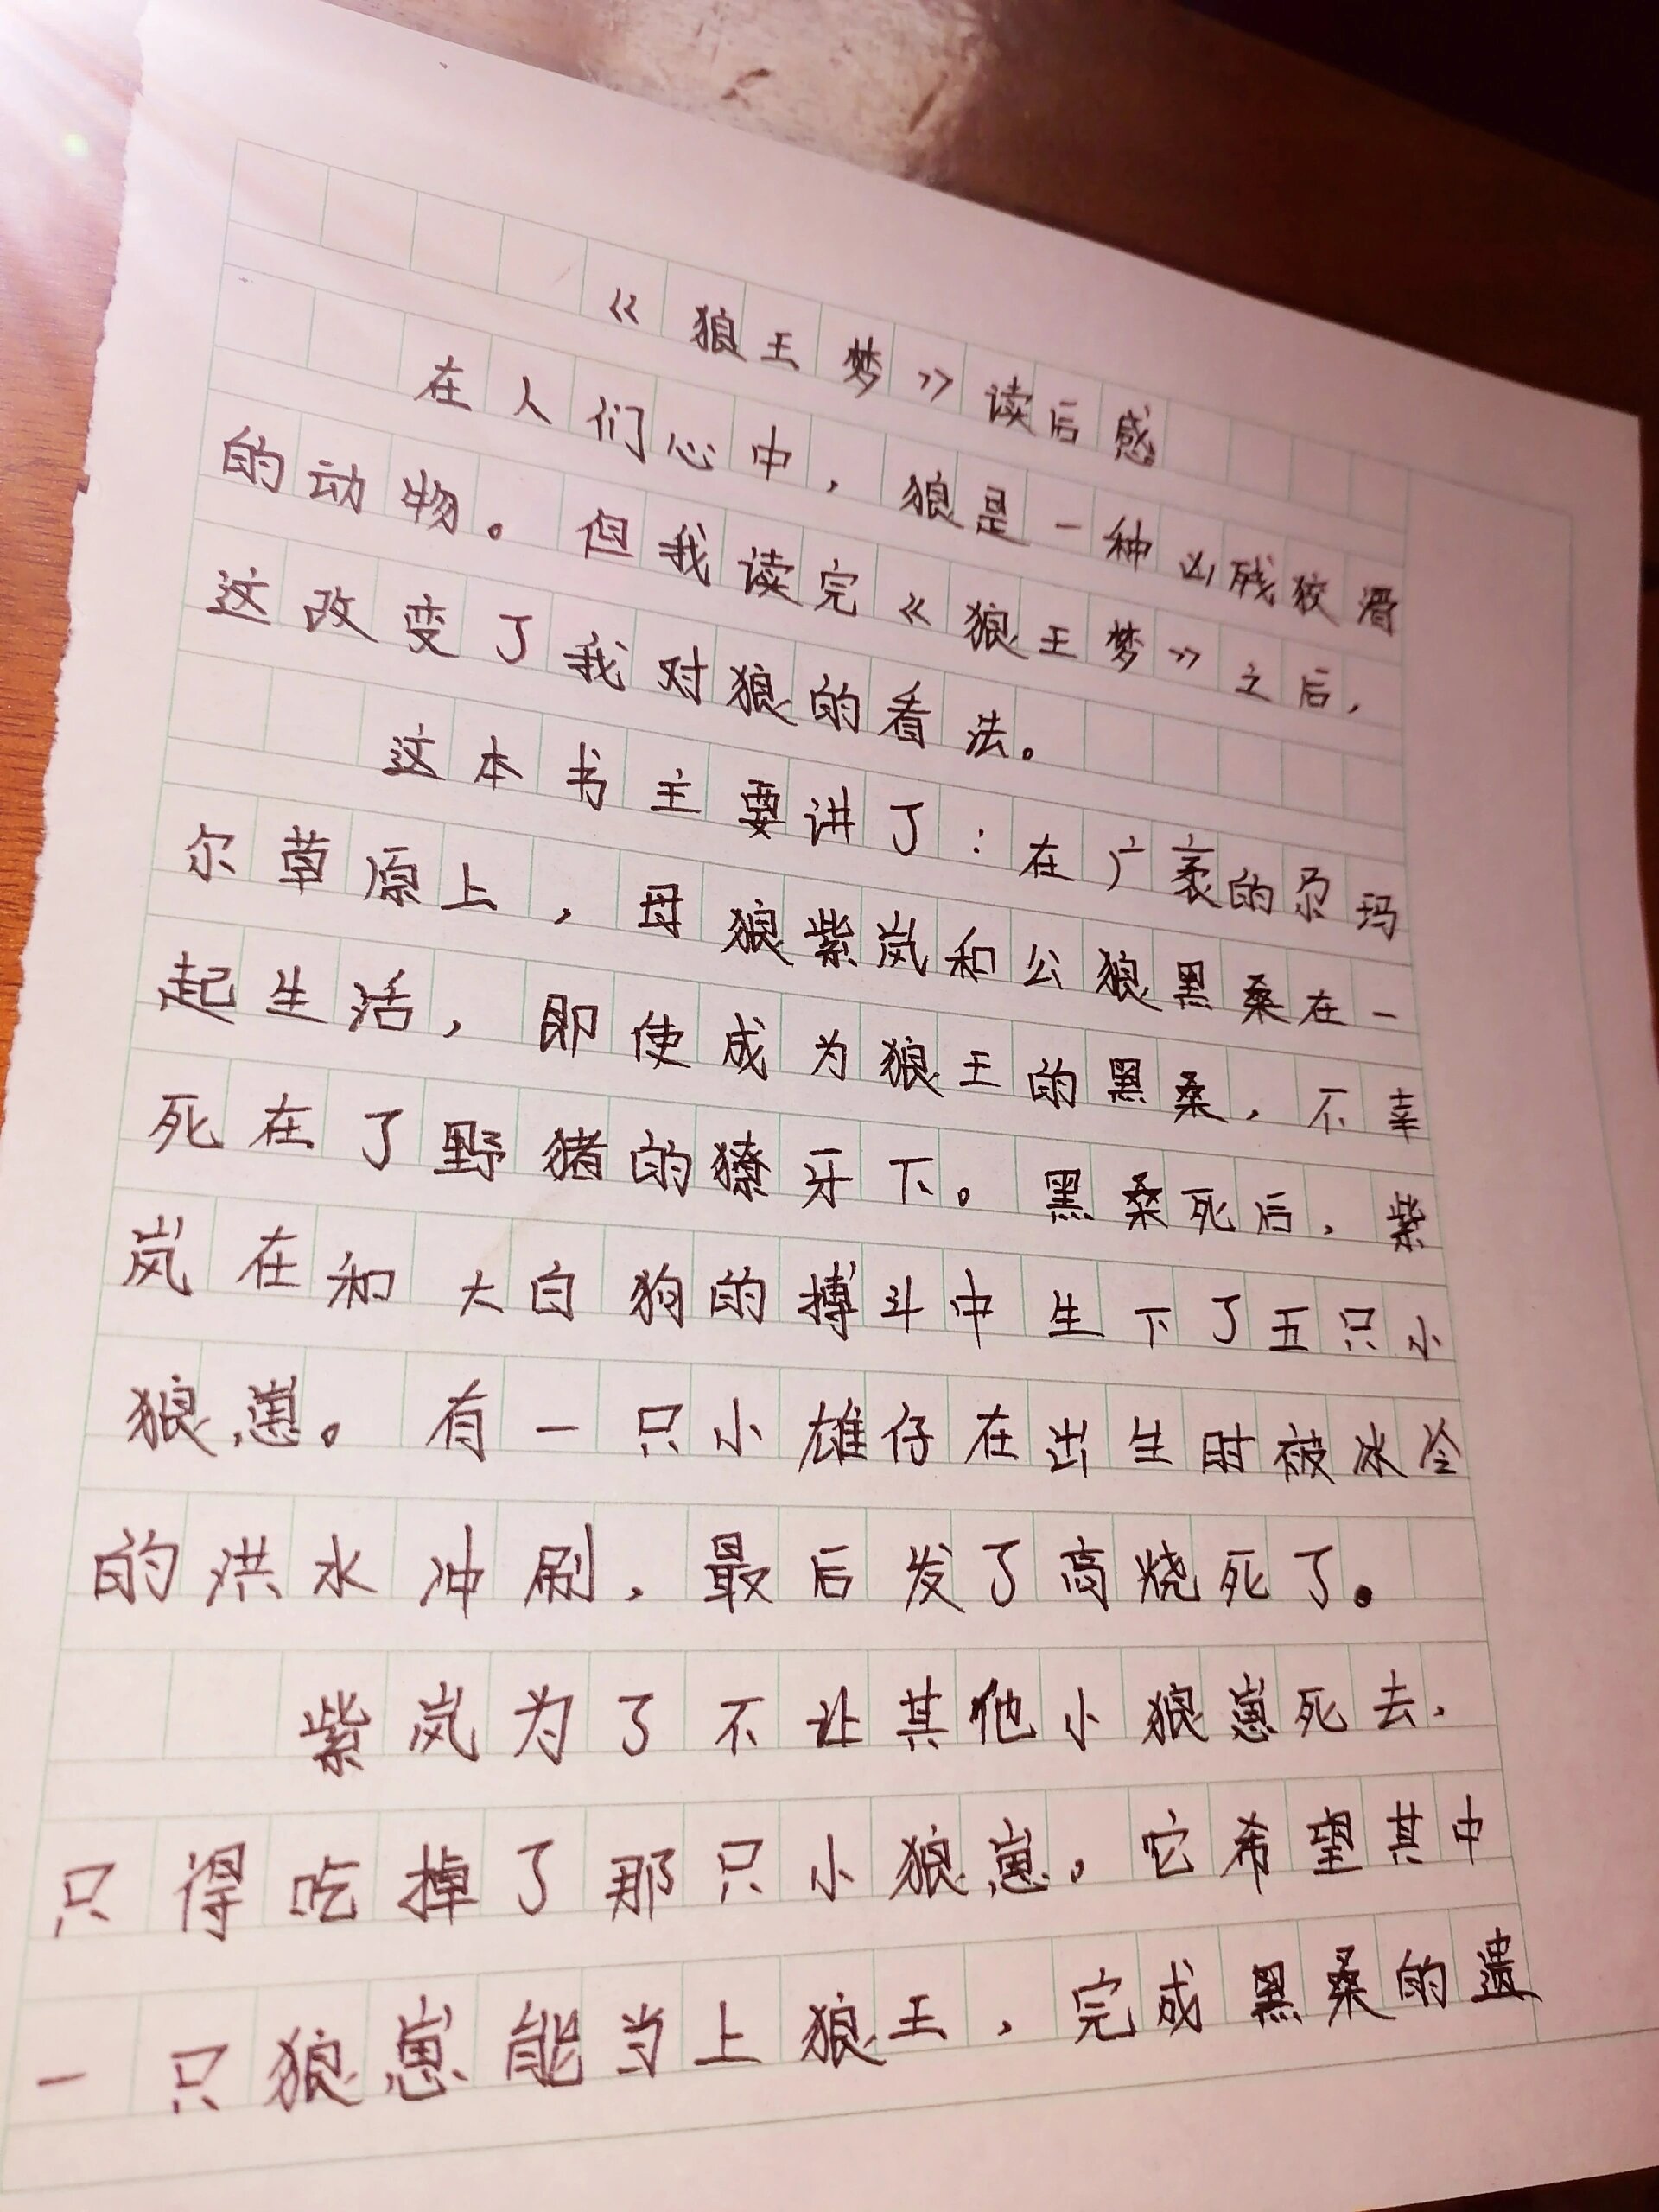 《狼王梦》读后感
在人们心中，狼是一种凶残狡猾
的动物。但我读完《狼王梦》之后，
这改变了我对狼的看法。
这本书主要讲了：在广袤的尕玛
尔草原上，母狼紫岚和公狼黑桑在一
起生活，即使成为狼王的黑桑，不幸
死在了野猪的獠牙下。黑桑死后，紫
岚在和大白狗的搏斗中生下了五只小
狼崽。有一只小雄仔在出生时被冰冷
的洪水冲刷，最后发了高烧死了。
紫岚为了不让其他小狼崽死去，
只得吃掉了那只小狼崽。它希望其中
一只狼崽能当上狼王，完成黑桑的遗